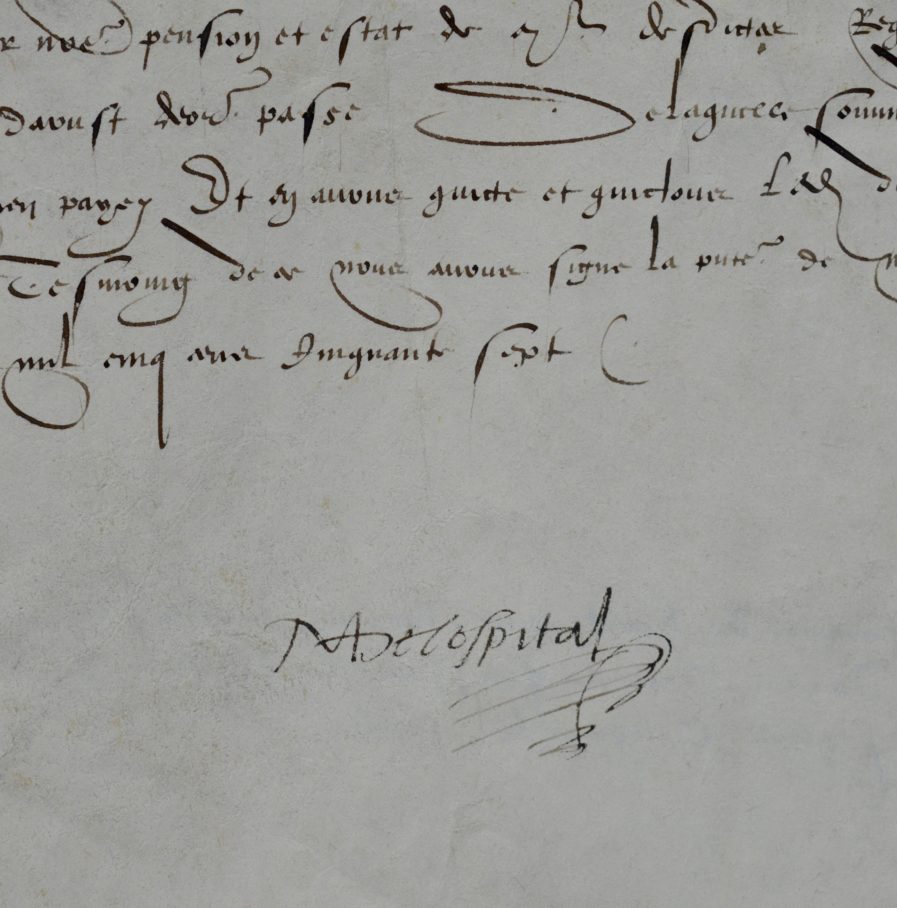 pension et estat de
davust dernr passe De laquelle somm
payez Et en avons quicte et quictons Led
Tesmoing de ce nous avons signe la pnte de
mil cinq cens Cinquante sept
M de lospital